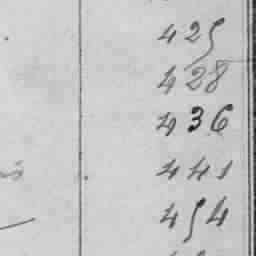 425
428
436
441
454